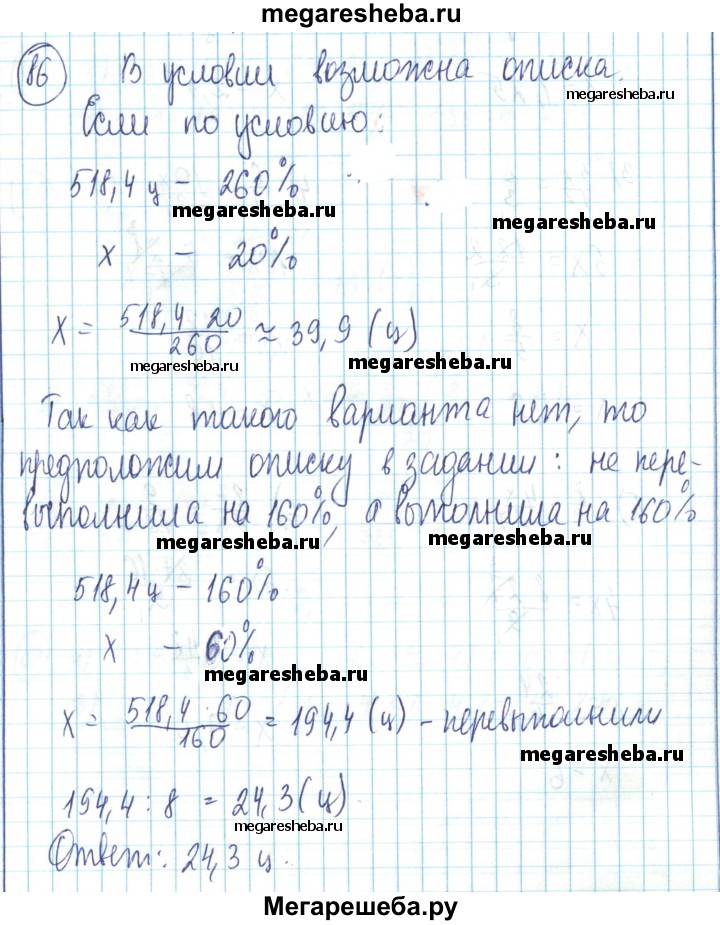 megaresheba.ru
86 В условии возможна описка.
megaresheba.ru
Если по условию:
518,4 ц – 260%
megaresheba.ru
х – 20%
megaresheba.ru
х = 518,4 · 20 / 260 ≈ 39,9 (ц)
megaresheba.ru
megaresheba.ru
Так как такого варианта нет, то
предположим описку в задании: не пере-
выполнила на 160%, а выполнила на 160%
megaresheba.ru
megaresheba.ru
518,4 ц – 160%
х – 60%
megaresheba.ru
х = 518,4 · 60 / 160 = 194,4 (ц) – перевыполнили
megaresheba.ru
194,4 : 8 = 24,3 (ц)
megaresheba.ru
Ответ: 24,3 ц.
Мегарешеба.ру